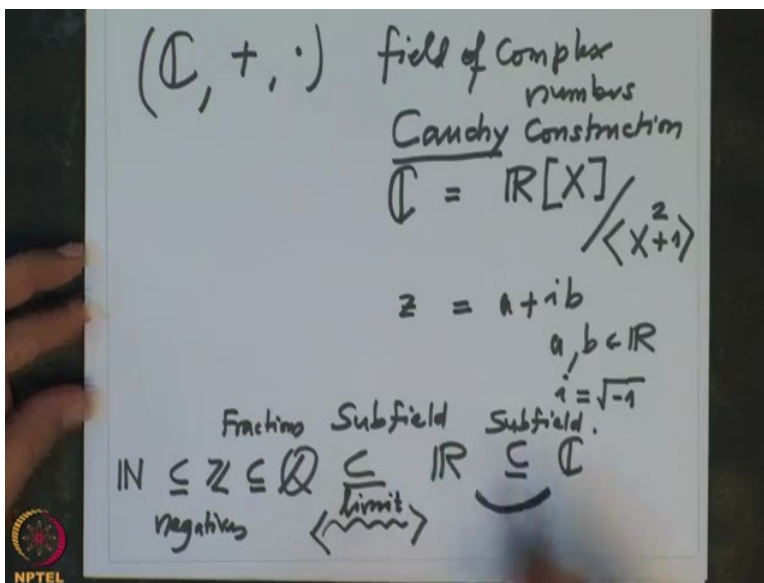 (ℂ, +, ·) field of Complex
numbers
Cauchy Construction
ℂ = ℝ[X]/⟨X²+1⟩
z = a + ib
a, b ∈ ℝ
i = √-1
Fractions Subfield Subfield.
ℕ ⊆ ℤ ⊆ ℚ ⊆ ℝ ⊆ ℂ
negatives limit
NPTEL